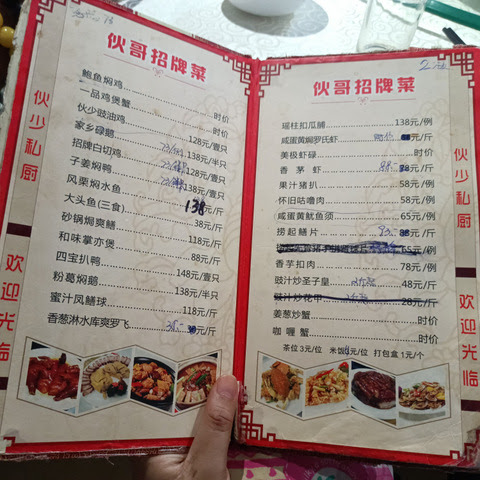 伙哥招牌菜
鲍鱼焖鸡 时价
一品鸡煲蟹 时价
伙少豉油鸡 128元/壹只
家乡碌鹅 138元/半只
招牌白切鸡 128元/壹只
子姜焖鸭
风栗焖水鱼 138元/斤
大头鱼(三食) 38元/斤
砂锅焗爽鳝 118元/斤
和味掌亦煲 88元/斤
四宝扒鸭 148元/壹只
粉葛焖鹅 138元/半只
蜜汁凤鳝球 118元/斤
香葱淋水库爽罗飞 元/斤
伙少私厨
欢迎光临
伙哥招牌菜
瑶柱扣瓜脯 138元/例
咸蛋黄焗罗氏虾 元/斤
美极虾碌 时价
香茅虾 88元/斤
果汁猪扒 58元/例
怀旧咕噜肉 58元/例
咸蛋黄鱿鱼须 65元/例
捞起鳝片 元/斤
65元/例
香芋扣肉 78元/例
豉汁炒圣子皇 元/斤
豉汁炒花甲 28元/斤
姜葱炒蟹 时价
咖喱蟹 时价
茶位 3元/位 米饭 元/位 打包盒 1元/个
伙少私厨
欢迎光临